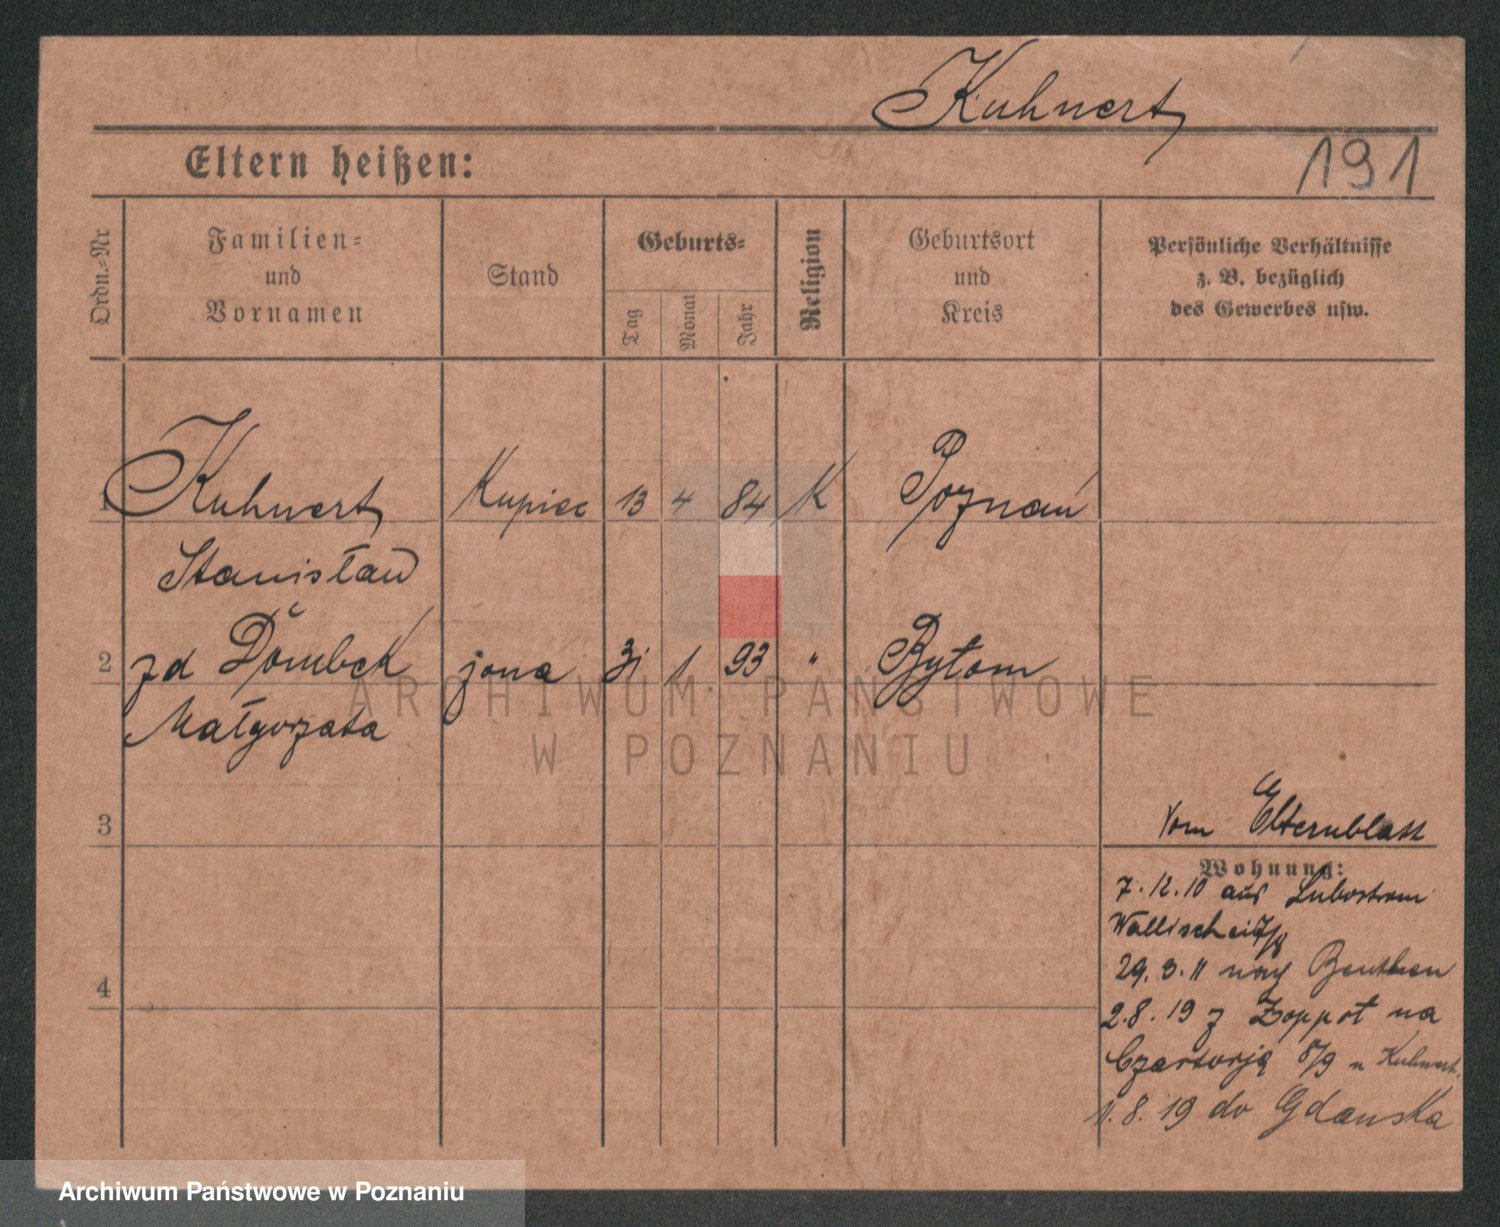 Kuhnert
Eltern heißen:
191
Ordn.=Nr
Familien=
und
Vornamen
Stand
Geburts=
Tag
Monat
Jahr
Religion
Geburtsort
und
Kreis
Persönliche Verhältnisse
z. B. bezüglich
des Gewerbes usw.
1 Kuhnert Kupiec 13 4 84 K Poznań
Stanisław
2 zd Dombek żona 31 1 93 " Bytom
Małgorzata
ARCHIWUM PAŃSTWOWE
W POZNANIU
3
Vom Elternblatt
Wohnung:
7.12.10 aus Lubostron
Wallischei 7/8
29.3.11 nach Beuthen
4
2.8.19 z Zoppot na
Czartorją 8/9 u Kuhnert.
1.8.19 do Gdańska
Archiwum Państwowe w Poznaniu